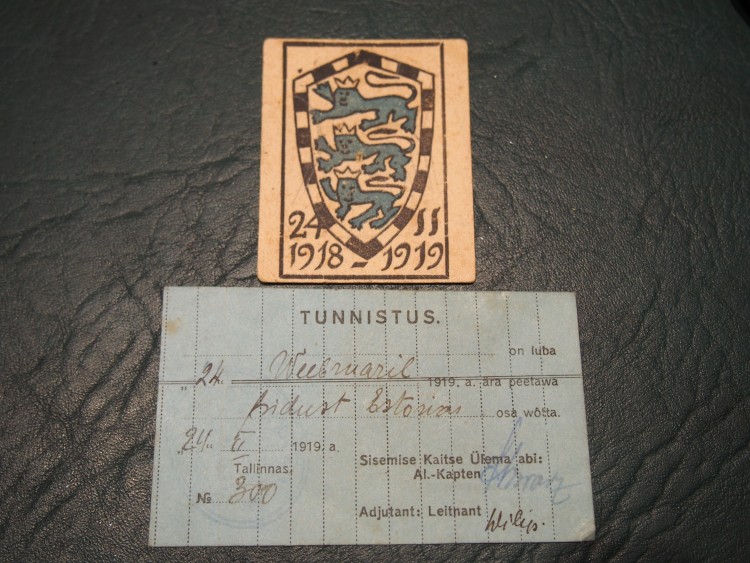 24 II
1918 - 1919
TUNNISTUS.
on luba
"24. Weebruaril 1919. a. ära peetawa
pidust Estonias osa wõtta.
"24." II 1919. a.
Tallinnas,
№ 300
Sisemise Kaitse Ülema abi:
Al.-Kapten
Adjutant: Leitnant